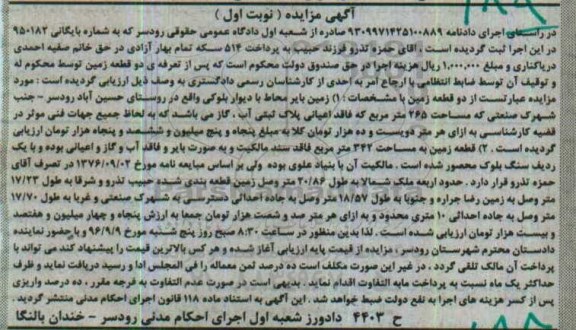 آگهی مزایده ( نوبت اول )
در راستای اجرای دادنامه ۹۳۰۹۹۷۱۴۲۵۱۰۰۸۸۹ صادره از شعبه اول دادگاه عمومی حقوقی رودسر که به شماره بایگانی ۹۵۰۱۸۲
در این اجرا ثبت گردیده است ، آقای حمزه تذرو فرزند حبیب به پرداخت ۵۱۴ سکه تمام بهار آزادی در حق خانم صفیه احمدی
دریاکناری و مبلغ ۱،۰۰۰،۰۰۰ ریال هزینه اجرا در حق صندوق دولت محکوم است که پس از تعرفه ی دو قطعه زمین توسط محکوم له
و توقیف آن توسط ضابط انتظامی با ارجاع امر به احدی از کارشناسان رسمی دادگستری به وصف ذیل ارزیابی گردیده است : مورد
مزایده عبارتست از دو قطعه زمین با مشخصات : ۱) زمین بایر محاط با دیوار بلوکی واقع در روستای حسین آباد رودسر – جنب
شهرک صنعتی که مساحت ۲۶۵ متر مربع که فاقد اعیانی پلاک ثبتی آب ، گاز می باشد که به لحاظ جمیع جهات فنی موثر در
قضیه کارشناسی به ازای هر متر دویست و ده هزار تومان کلا به مبلغ پنجاه و پنج میلیون و ششصد و پنجاه هزار تومان ارزیابی
گردیده است . ۲) قطعه زمین به مساحت ۳۴۲ متر مربع فاقد سند مالکیت و به صورت بایر و فاقد آب و گاز و اعیانی بوده و با یک
ردیف سنگ بلوک محصور شده است . مالکیت آن با بنیاد علوی بوده ولی بر اساس مبایعه نامه مورخ ۱۳۷۶/۰۹/۰۲ در تصرف آقای
حمزه تذرو قرار دارد . حدود اربعه ملک شمالا به طول ۲۰/۸۶ متر وصل زمین قطعه بندی شده حبیب تذرو و شرقا به طول ۱۷/۲۳
متر وصل به زمین رضا جراره و جنوبا به طول ۱۸/۵۷ متر وصل به جاده احداثی دسترسی به شهرک صنعتی و غربا به طول ۱۷/۷۰
متر وصل به جاده احداثی ۱۰ متری محدود و به ازای هر متر صد و شصت هزار تومان جمعا به ارزش پنجاه و چهار میلیون و هفتصد
و بیست هزار تومان ارزیابی شده است . لذا بدین منظور در ساعت ۸:۳۰ صبح روز پنج شنبه مورخ ۹۶/۹/۹ و با حضور نماینده
دادستان محترم شهرستان رودسر ، مزایده از قیمت پایه ارزیابی آغاز شده و هر کس بالاترین قیمت را پیشنهاد کند می تواند با
پرداخت آن مالک تلقی گردد ، در غیر این صورت مکلف است ده درصد ثمن معماله را فی المجلس ادا و رسید دریافت نماید و ظرف
حداکثر یک ماه نسبت به پرداخت مابه التفاوت اقدام نماید . بدیهی است در صورت عدم التفاوت به فرجه مقرر ، ده درصد واریزی
پس از کسر هزینه های اجرا به نفع دولت ضبط خواهد شد . این آگهی به استناد ماده ۱۱۸ قانون اجرای احکام مدنی منتشر گردید .
ح ۴۴۰۳ دادورز شعبه اول اجرای احکام مدنی رودسر – خندان بالنگا